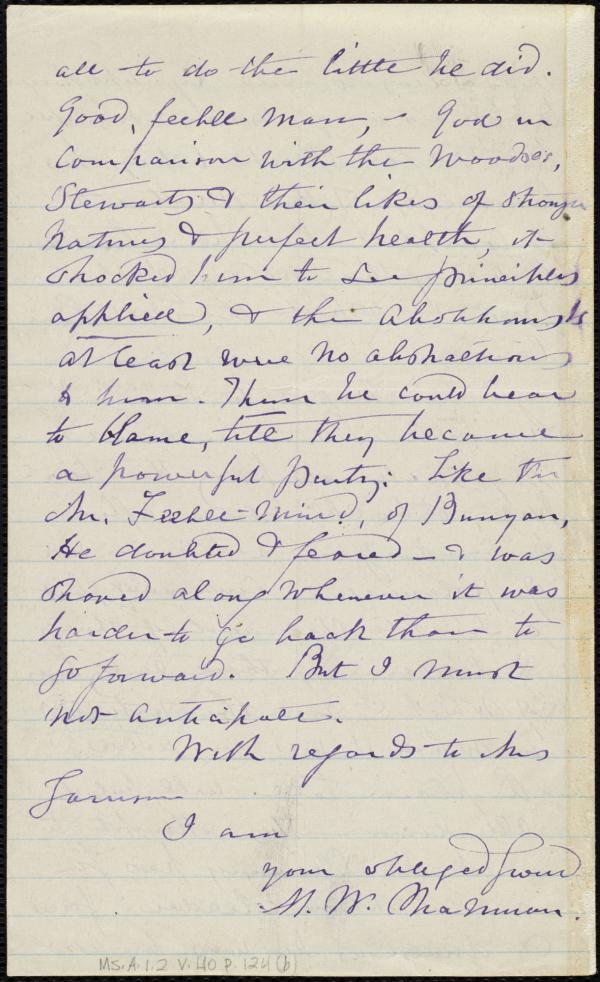 all to do the little he did.
Good, feeble man, - God in
comparison with the Woodses,
Stewarts & their likes of stronger
natures & perfect health, it
shocked him to see principles
applied, & the Abolitionists
at least were no abstractions
to him. Them he could bear
to blame, till they became
a powerful party: Like the
Mr. Feeble-Mind, of Bunyan,
He doubted & feared - & was
shoved along whenever it was
harder to go back than to
go forward. But I must
not anticipate.
With regards to Mrs
Garrison
I am
your obliged friend
M. W. Chapman.
MS. A. 1. 2 V. 40 P. 124 (b)